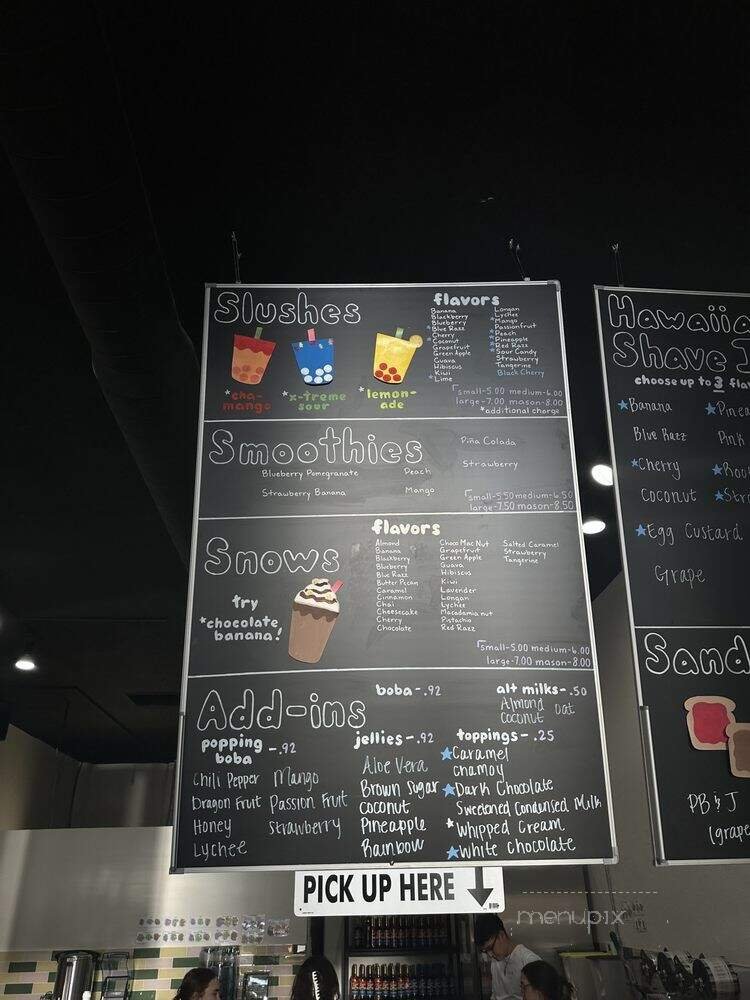 Slushes
flavors
Banana
Blackberry
Blueberry
*Blue Razz
Cherry
*Coconut
Grapefruit
Green Apple
Guava
Hibiscus
Kiwi
*Lime
Longan
Lychee
*Mango
Passionfruit
*Peach
*Pineapple
*Red Razz
*Sour Candy
Strawberry
Tangerine
Black Cherry
*cha-
mango
*x-treme
sour
*lemon-
ade
small-5.00 medium-6.00
large-7.00 mason-8.00
*additional charge
Smoothies
Blueberry Pomegranate
Strawberry Banana
Peach
Mango
Piña Colada
Strawberry
small-5.50 medium-6.50
large-7.50 mason-8.50
Snows
try
*chocolate
banana!
flavors
Almond
Banana
Blackberry
Blueberry
Blue Razz
Butter Pecan
Caramel
Cinnamon
Chai
Cheesecake
Cherry
Chocolate
Choco Mac Nut
Grapefruit
Green Apple
Guava
Hibiscus
Kiwi
Lavender
Longan
Lychee
Macadamia nut
Pistachio
Red Razz
Salted Caramel
Strawberry
Tangerine
small-5.00 medium-6.00
large-7.00 mason-8.00
Add-ins
boba-.92
alt milks-.50
Almond oat
Coconut
popping
boba -.92
Chili Pepper Mango
Dragon Fruit Passion Fruit
Honey Strawberry
Lychee
jellies-.92
Aloe Vera
Brown Sugar
coconut
Pineapple
Rainbow
toppings-.25
★Caramel
chamoy
★Dark Chocolate
Sweetened Condensed Milk
*Whipped Cream
★White chocolate
PICK UP HERE
Hawaiia
Shave I
choose up to 3 fla
★Banana
Blue Razz
★Cherry
Coconut
★Egg Custard
Grape
★Pinea
Pink
★Roo
★Str
Sand
PB & J
(grape
menupix